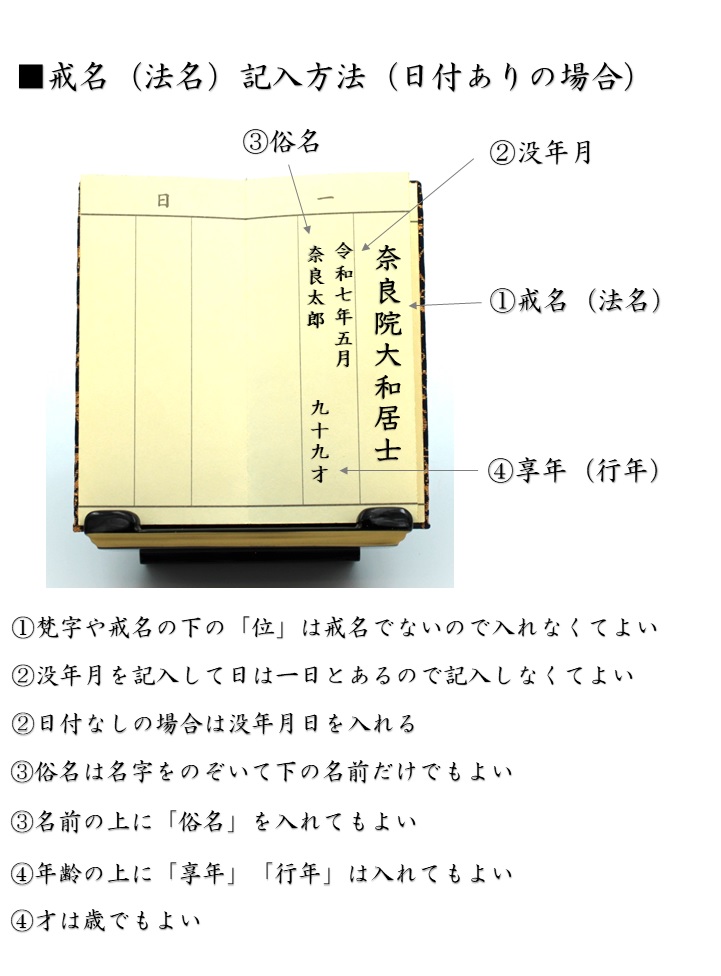 ■戒名（法名）記入方法（日付ありの場合）
③俗名
②没年月
日
一
奈良院大和居士
令和七年五月
奈良太郎　九十九才
①戒名（法名）
④享年（行年）
①梵字や戒名の下の「位」は戒名でないので入れなくてよい
②没年月を記入して日は一日とあるので記入しなくてよい
②日付なしの場合は没年月日を入れる
③俗名は名字をのぞいて下の名前だけでもよい
③名前の上に「俗名」を入れてもよい
④年齢の上に「享年」「行年」は入れてもよい
④才は歳でもよい